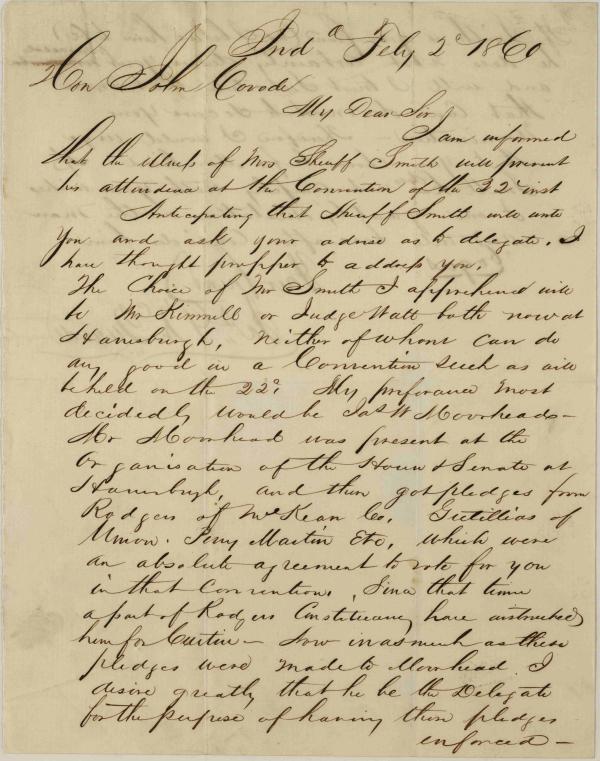 Ind a Feby 2d 1860
Hon John Covode
My Dear Sir
I am informed
that the illness of Mrs Sheriff Smith will prevent
his attendence at the Convention of the 22d inst
Anticipating that Sheriff Smith will write
you and ask your advise as to delegate. I
have thought propper to address you.
The Choice of Mr Smith I apprehend will
be Mr Kimmell or Judge Watt both now at
Harrisburgh, neither of whom can do
any good in a Convention such as will
be held on the 22d. My preferance most
decidedly would be Jas W Moorheads —
Mr Moorhead was present at the
Organisation of the House & Senate at
Harrisburgh, and then got pledges from
Rodgers of McKean Co. of
Union. Perry Martin Etc, which were
an absolute agreement to vote for you
in that Convention. Since that time
a part of Rodgers Constituancy have instructed
him for Curtin — Now in as much as these
pledges were made to Moorhead I
desire greatly that he be the Delegate
for the purpose of having them pledges
enforced —